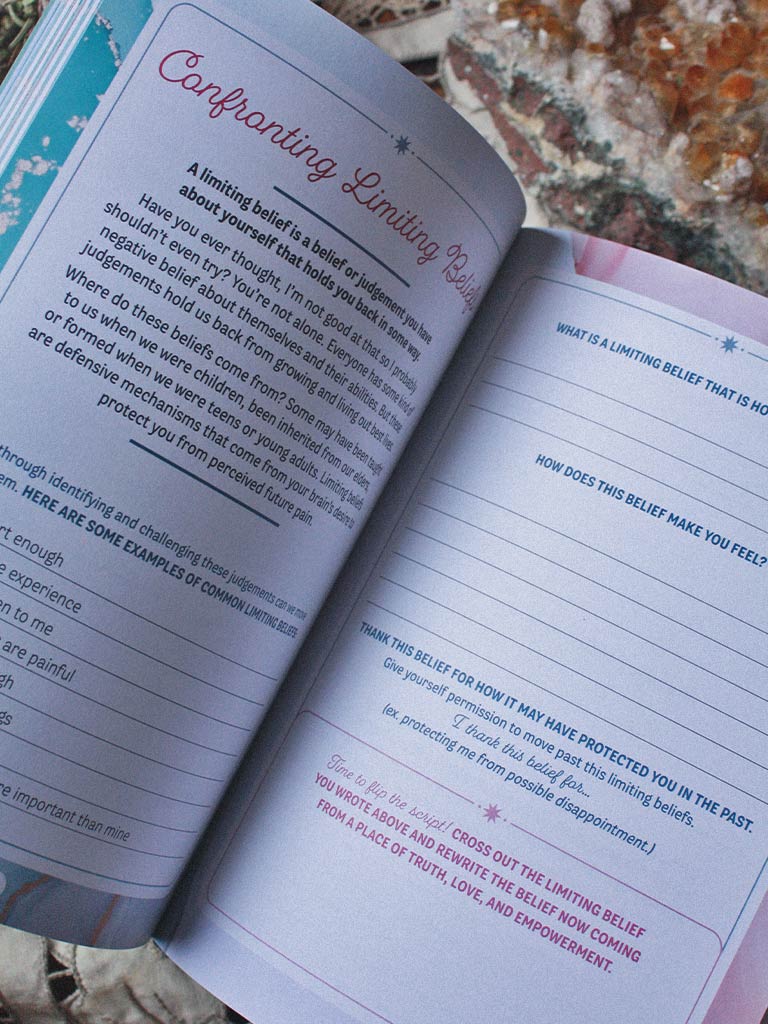 Confronting Limiting Beliefs
A limiting belief is a belief or judgement you have
about yourself that holds you back in some way.
Have you ever thought, I'm not good at that so I probably
shouldn't even try? You're not alone. Everyone has some kind of
negative belief about themselves and their abilities. But these
judgements hold us back from growing and living out best lives.
Where do these beliefs come from? Some may have been taught
to us when we were children, been inherited from our elders,
or formed when we were teens or young adults. Limiting beliefs
are defensive mechanisms that come from your brain's desire to
protect you from perceived future pain.
through identifying and challenging these judgements can we move
em. HERE ARE SOME EXAMPLES OF COMMON LIMITING BELIEFS.
rt enough
e experience
en to me
are painful
gh
gs
re important than mine
WHAT IS A LIMITING BELIEF THAT IS HO
HOW DOES THIS BELIEF MAKE YOU FEEL?
THANK THIS BELIEF FOR HOW IT MAY HAVE PROTECTED YOU IN THE PAST.
Give yourself permission to move past this limiting beliefs.
I thank this belief for...
(ex. protecting me from possible disappointment.)
Time to flip the script! CROSS OUT THE LIMITING BELIEF
YOU WROTE ABOVE AND REWRITE THE BELIEF NOW COMING
FROM A PLACE OF TRUTH, LOVE, AND EMPOWERMENT.